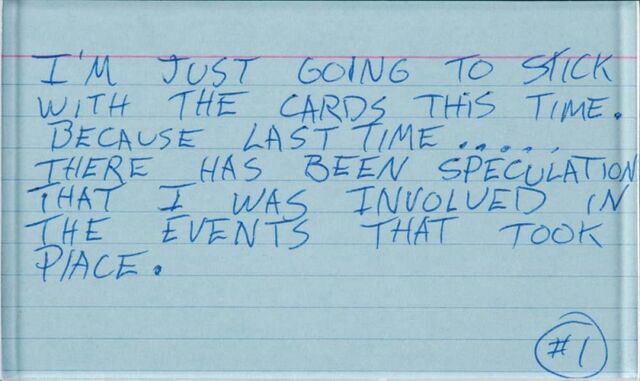 I'M JUST GOING TO STICK
WITH THE CARDS THIS TIME.
BECAUSE LAST TIME......
THERE HAS BEEN SPECULATION
THAT I WAS INVOLVED IN
THE EVENTS THAT TOOK
PLACE.
#1